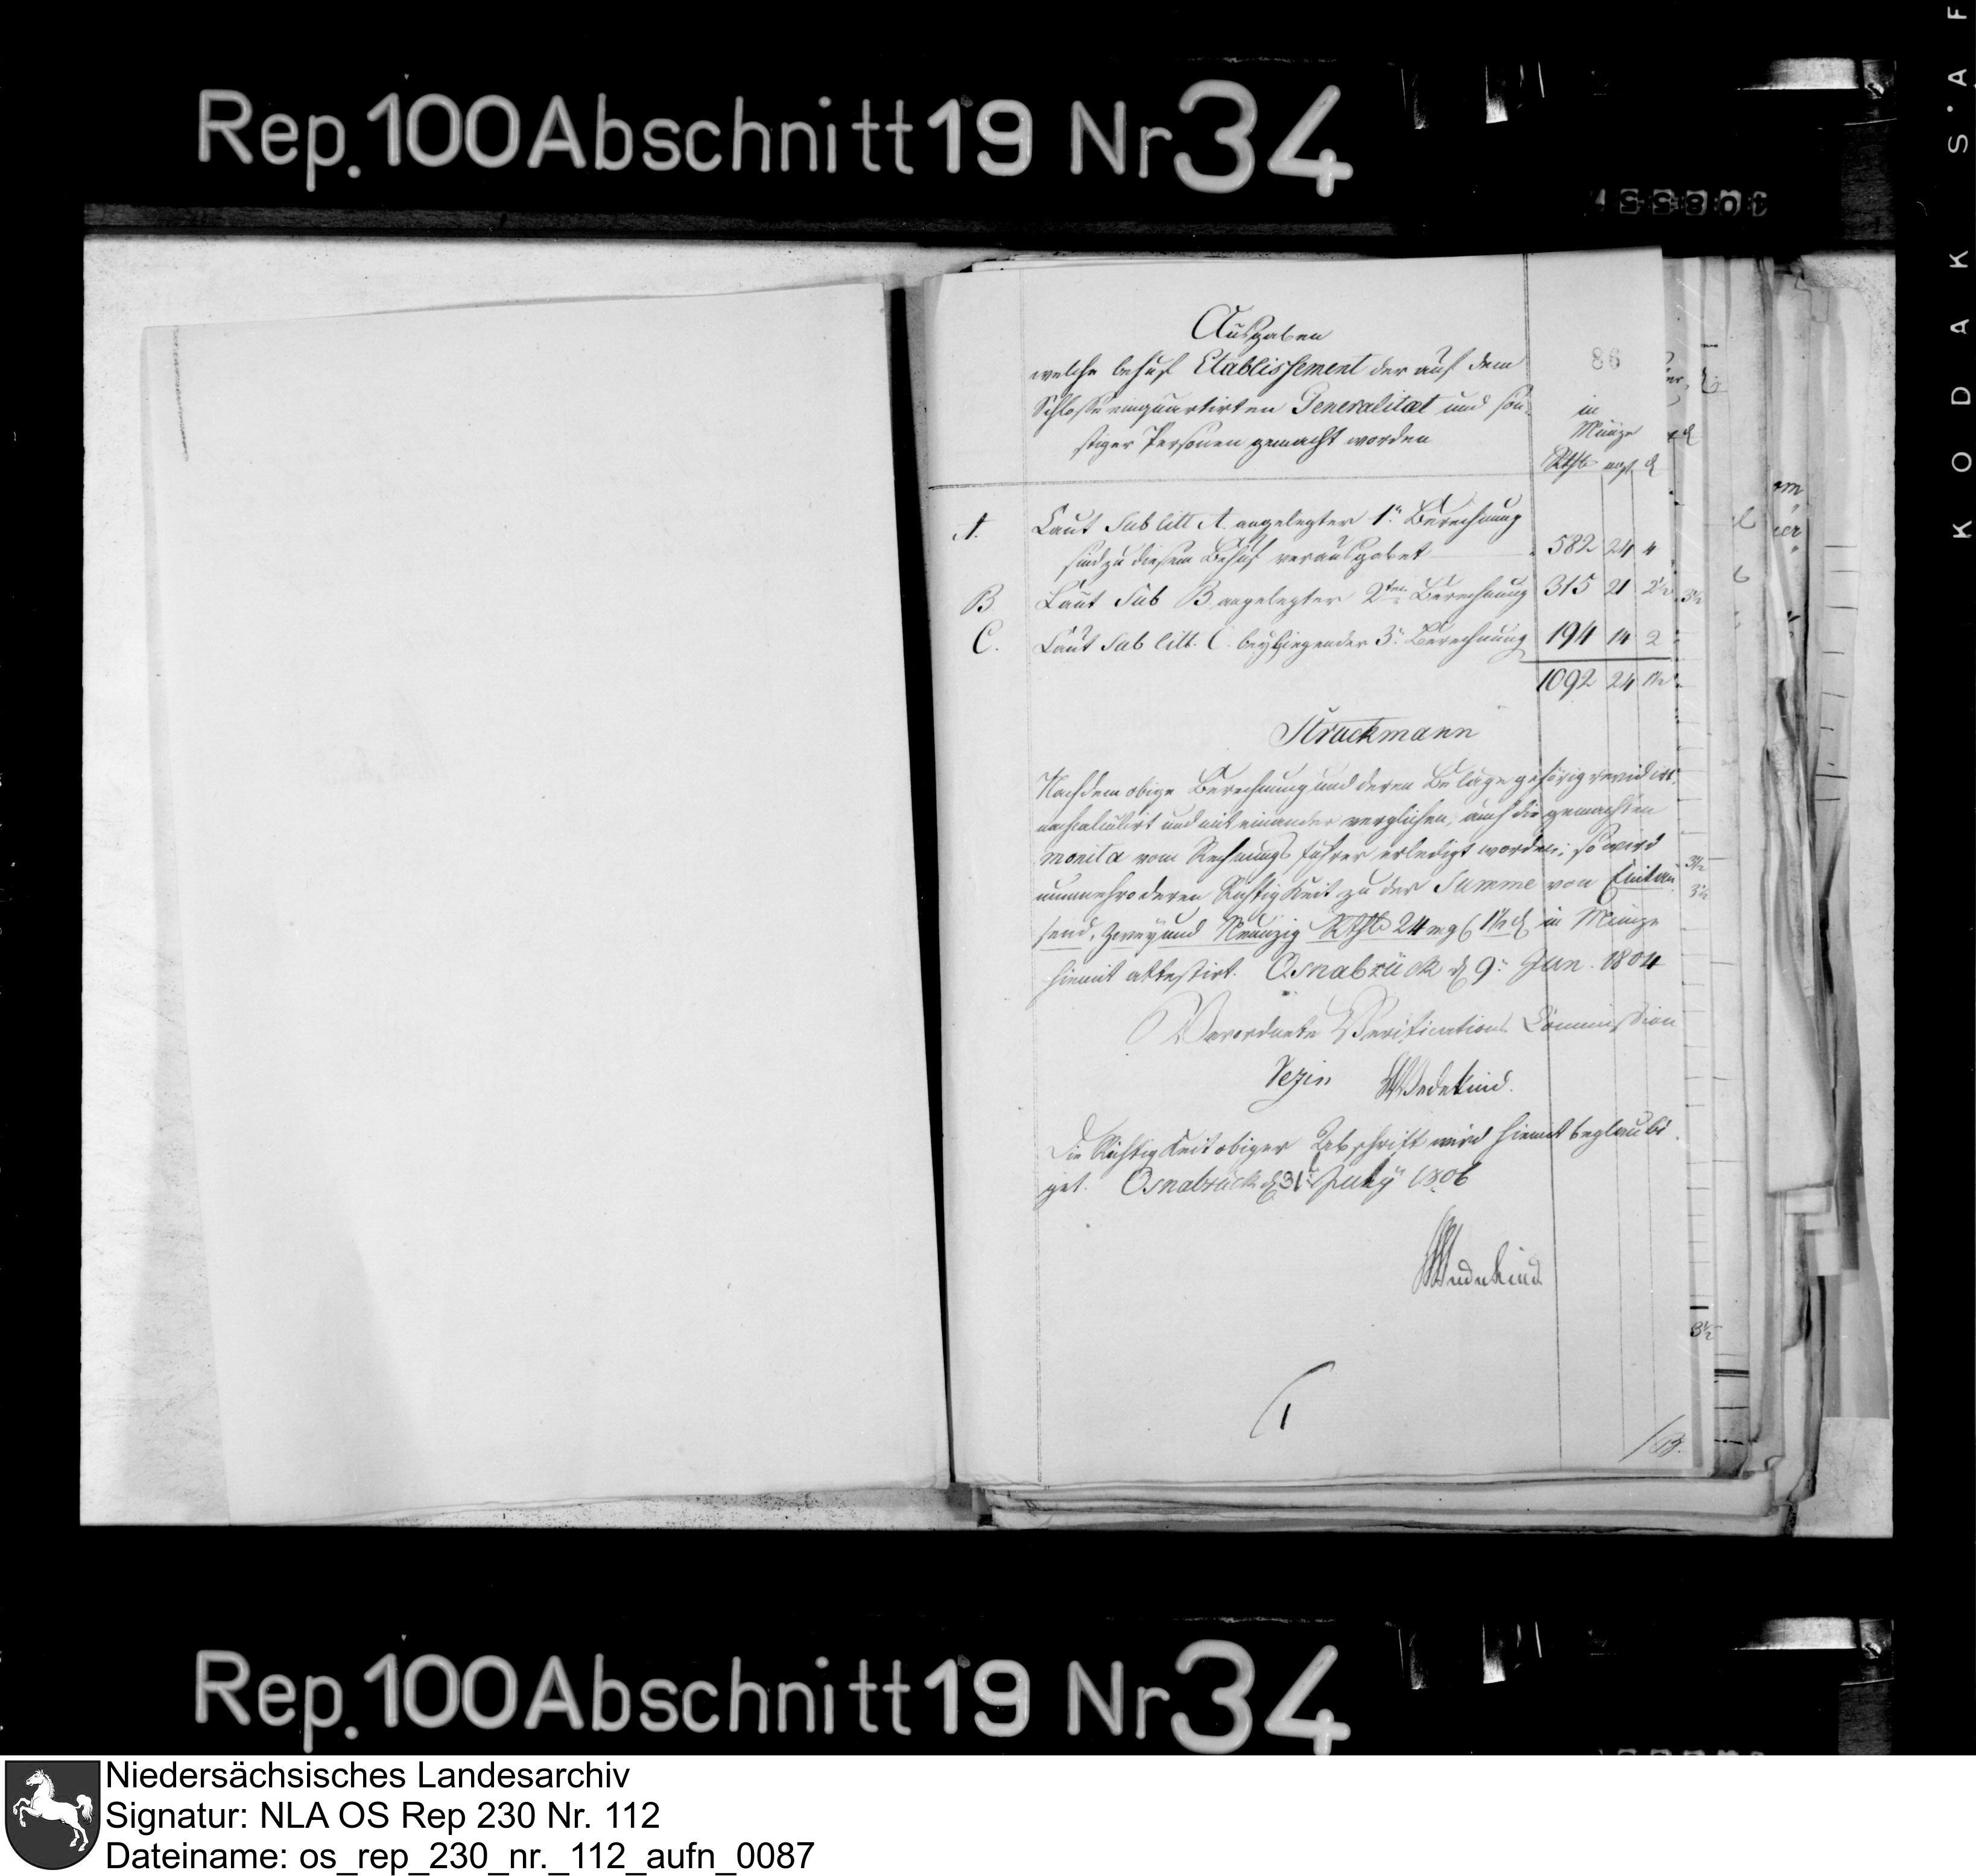 Rep. 100 Abschnitt 19 Nr 34
KODAK S'AF
86
Ausgaben
welche behuf Etablissement der auf dem
Schlosse einquartirten Generalitæt und son-
stiger Personen gemacht worden
in
Münze
Rthlr mgf d
A. Laut Sub litt A. angelegter 1n Berechnung
sind zu diesem Behuf verausgabet 582 24 4
B Laut Sub B angelegter 2ten Berechnung 315 21 2½
C. Laut Sub litt. C. beyliegender 3n Berechnung 194 14 2
1092 24 1½
Struckmann
Nachdem obige Berechnung und deren Belage gehörig revidirt,
nachcalculirt und mit einander verglichen, auch die gemachten
monita vom Rechnungsführer erledigt worden; so wird
nunmehro deren Richtigkeit zu der Summe von Eintau-
send, zwey und Neunzig Rthlr 24 mgf 1½ d in Münze
hiemit attestirt. Osnabrück d 9n Jun. 1804
Verordnete Verifications Commission
Vezin Wedekind.
Die Richtigkeit obiger Abschrift wird hiemit beglaubi-
get. Osnabrück d 31n July 1806
Wedekind
1
Rep. 100 Abschnitt 19 Nr 34
Niedersächsisches Landesarchiv
Signatur: NLA OS Rep 230 Nr. 112
Dateiname: os_rep_230_nr._112_aufn_0087